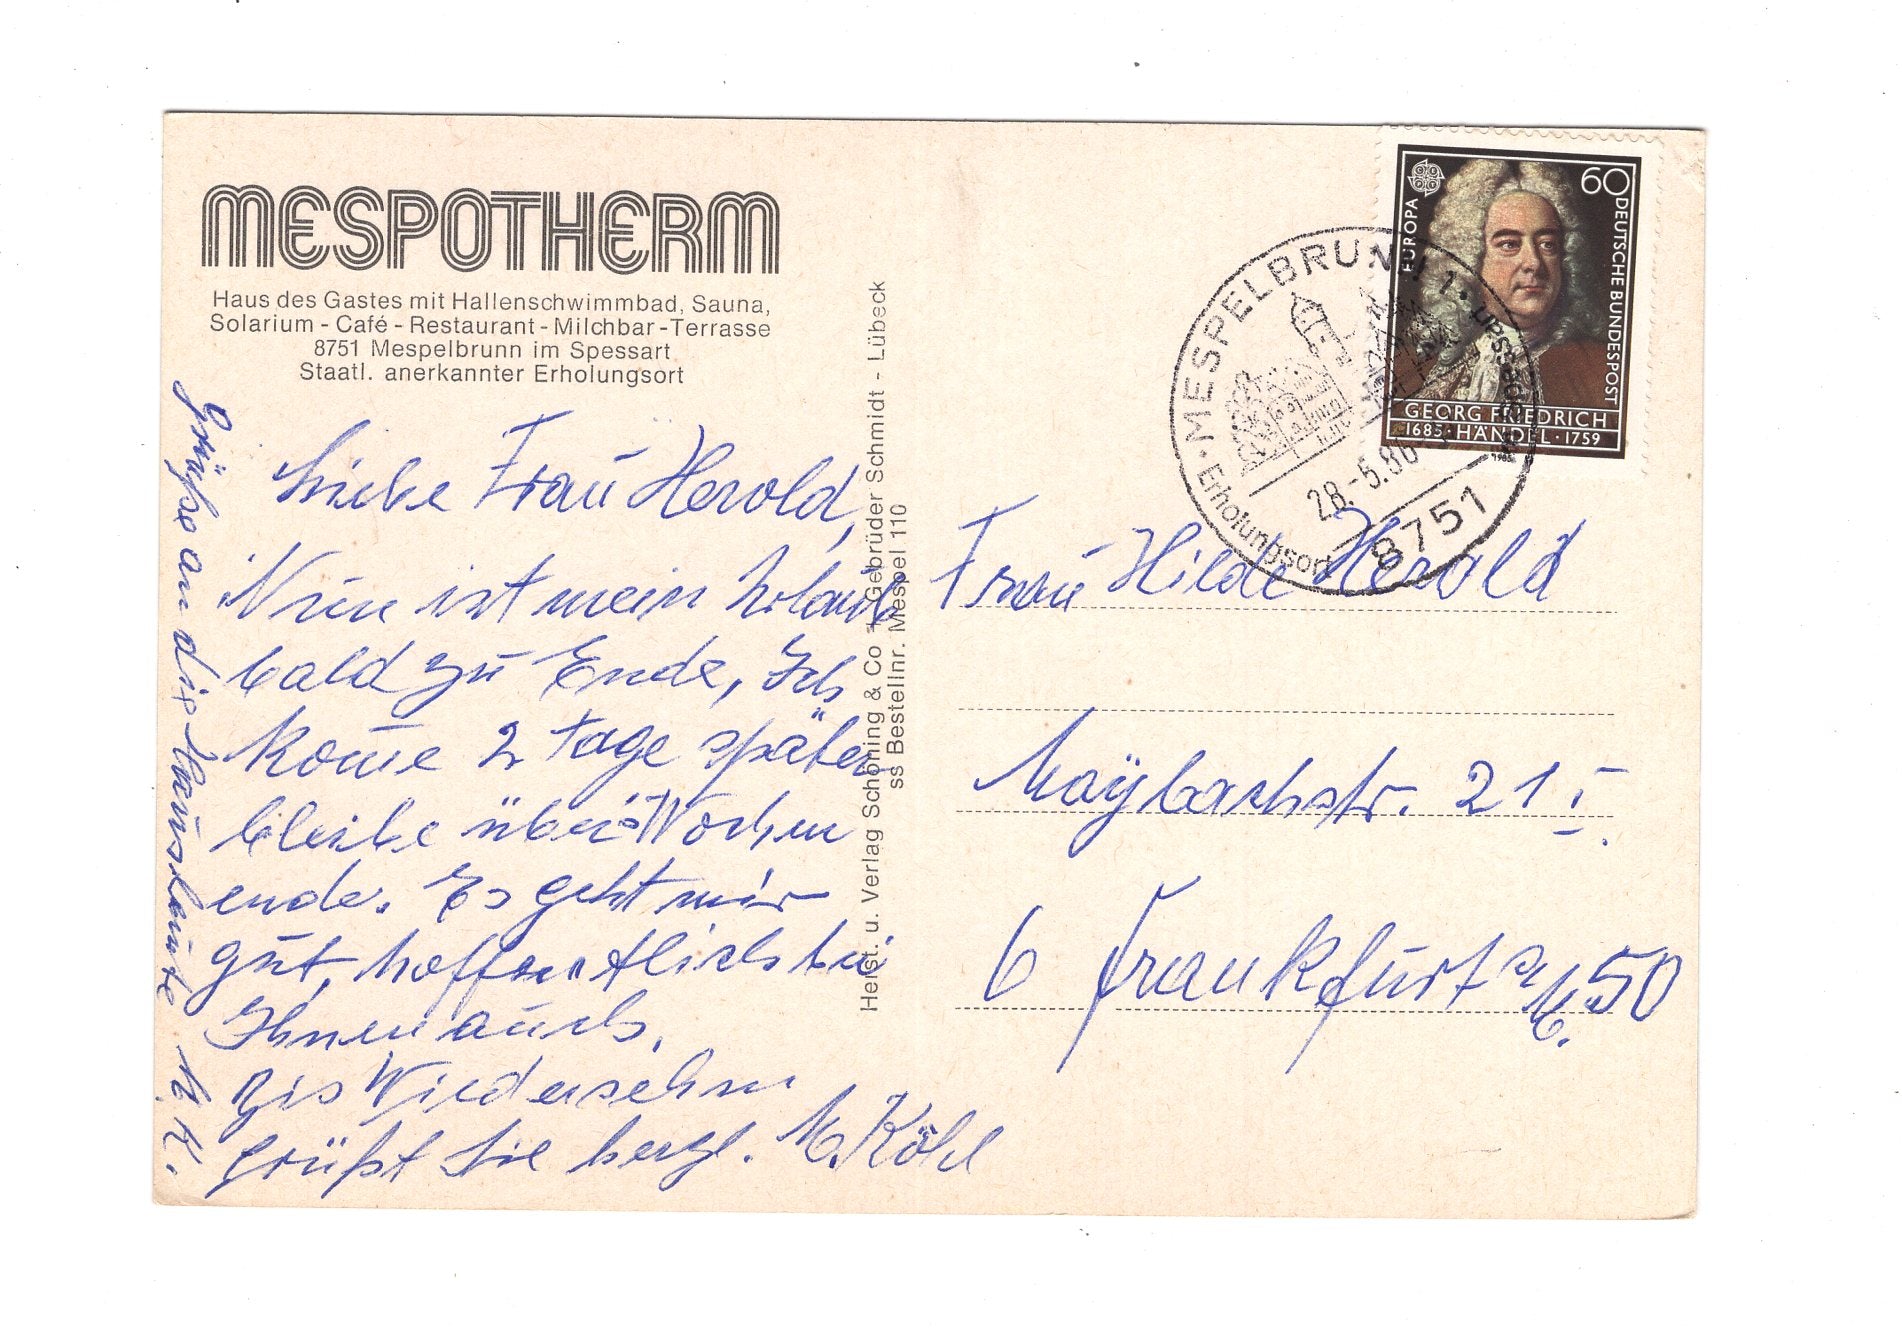 MESPOTHERM
Haus des Gastes mit Hallenschwimmbad, Sauna,
Solarium - Café - Restaurant - Milchbar - Terrasse
8751 Mespelbrunn im Spessart
Staatl. anerkannter Erholungsort
Liebe Frau Herold,
Nun ist mein Urlaub
bald zu Ende, Ich
kome 2 Tage später
bleibe über's Wochen
ende. Es geht mir
gut, hoffentlich bei
Ihnen auch.
Bis Wiedersehn
grüßt Sie herzl. M. Köhl
Grüße an die Hausleute M. K.
Herst. u. Verlag Schöning & Co + Gebrüder Schmidt - Lübeck
ss Bestellnr. Mespel 110
EUROPA
60
DEUTSCHE BUNDESPOST
GEORG FRIEDRICH
1685 · HÄNDEL · 1759
1985
· MESPELBRUNN 1 ·
28.-5.86
8751
Erholungsort
Frau Hilde Herold
Maÿbachstr. 21 I.
6 Frankfurt a/M. 50